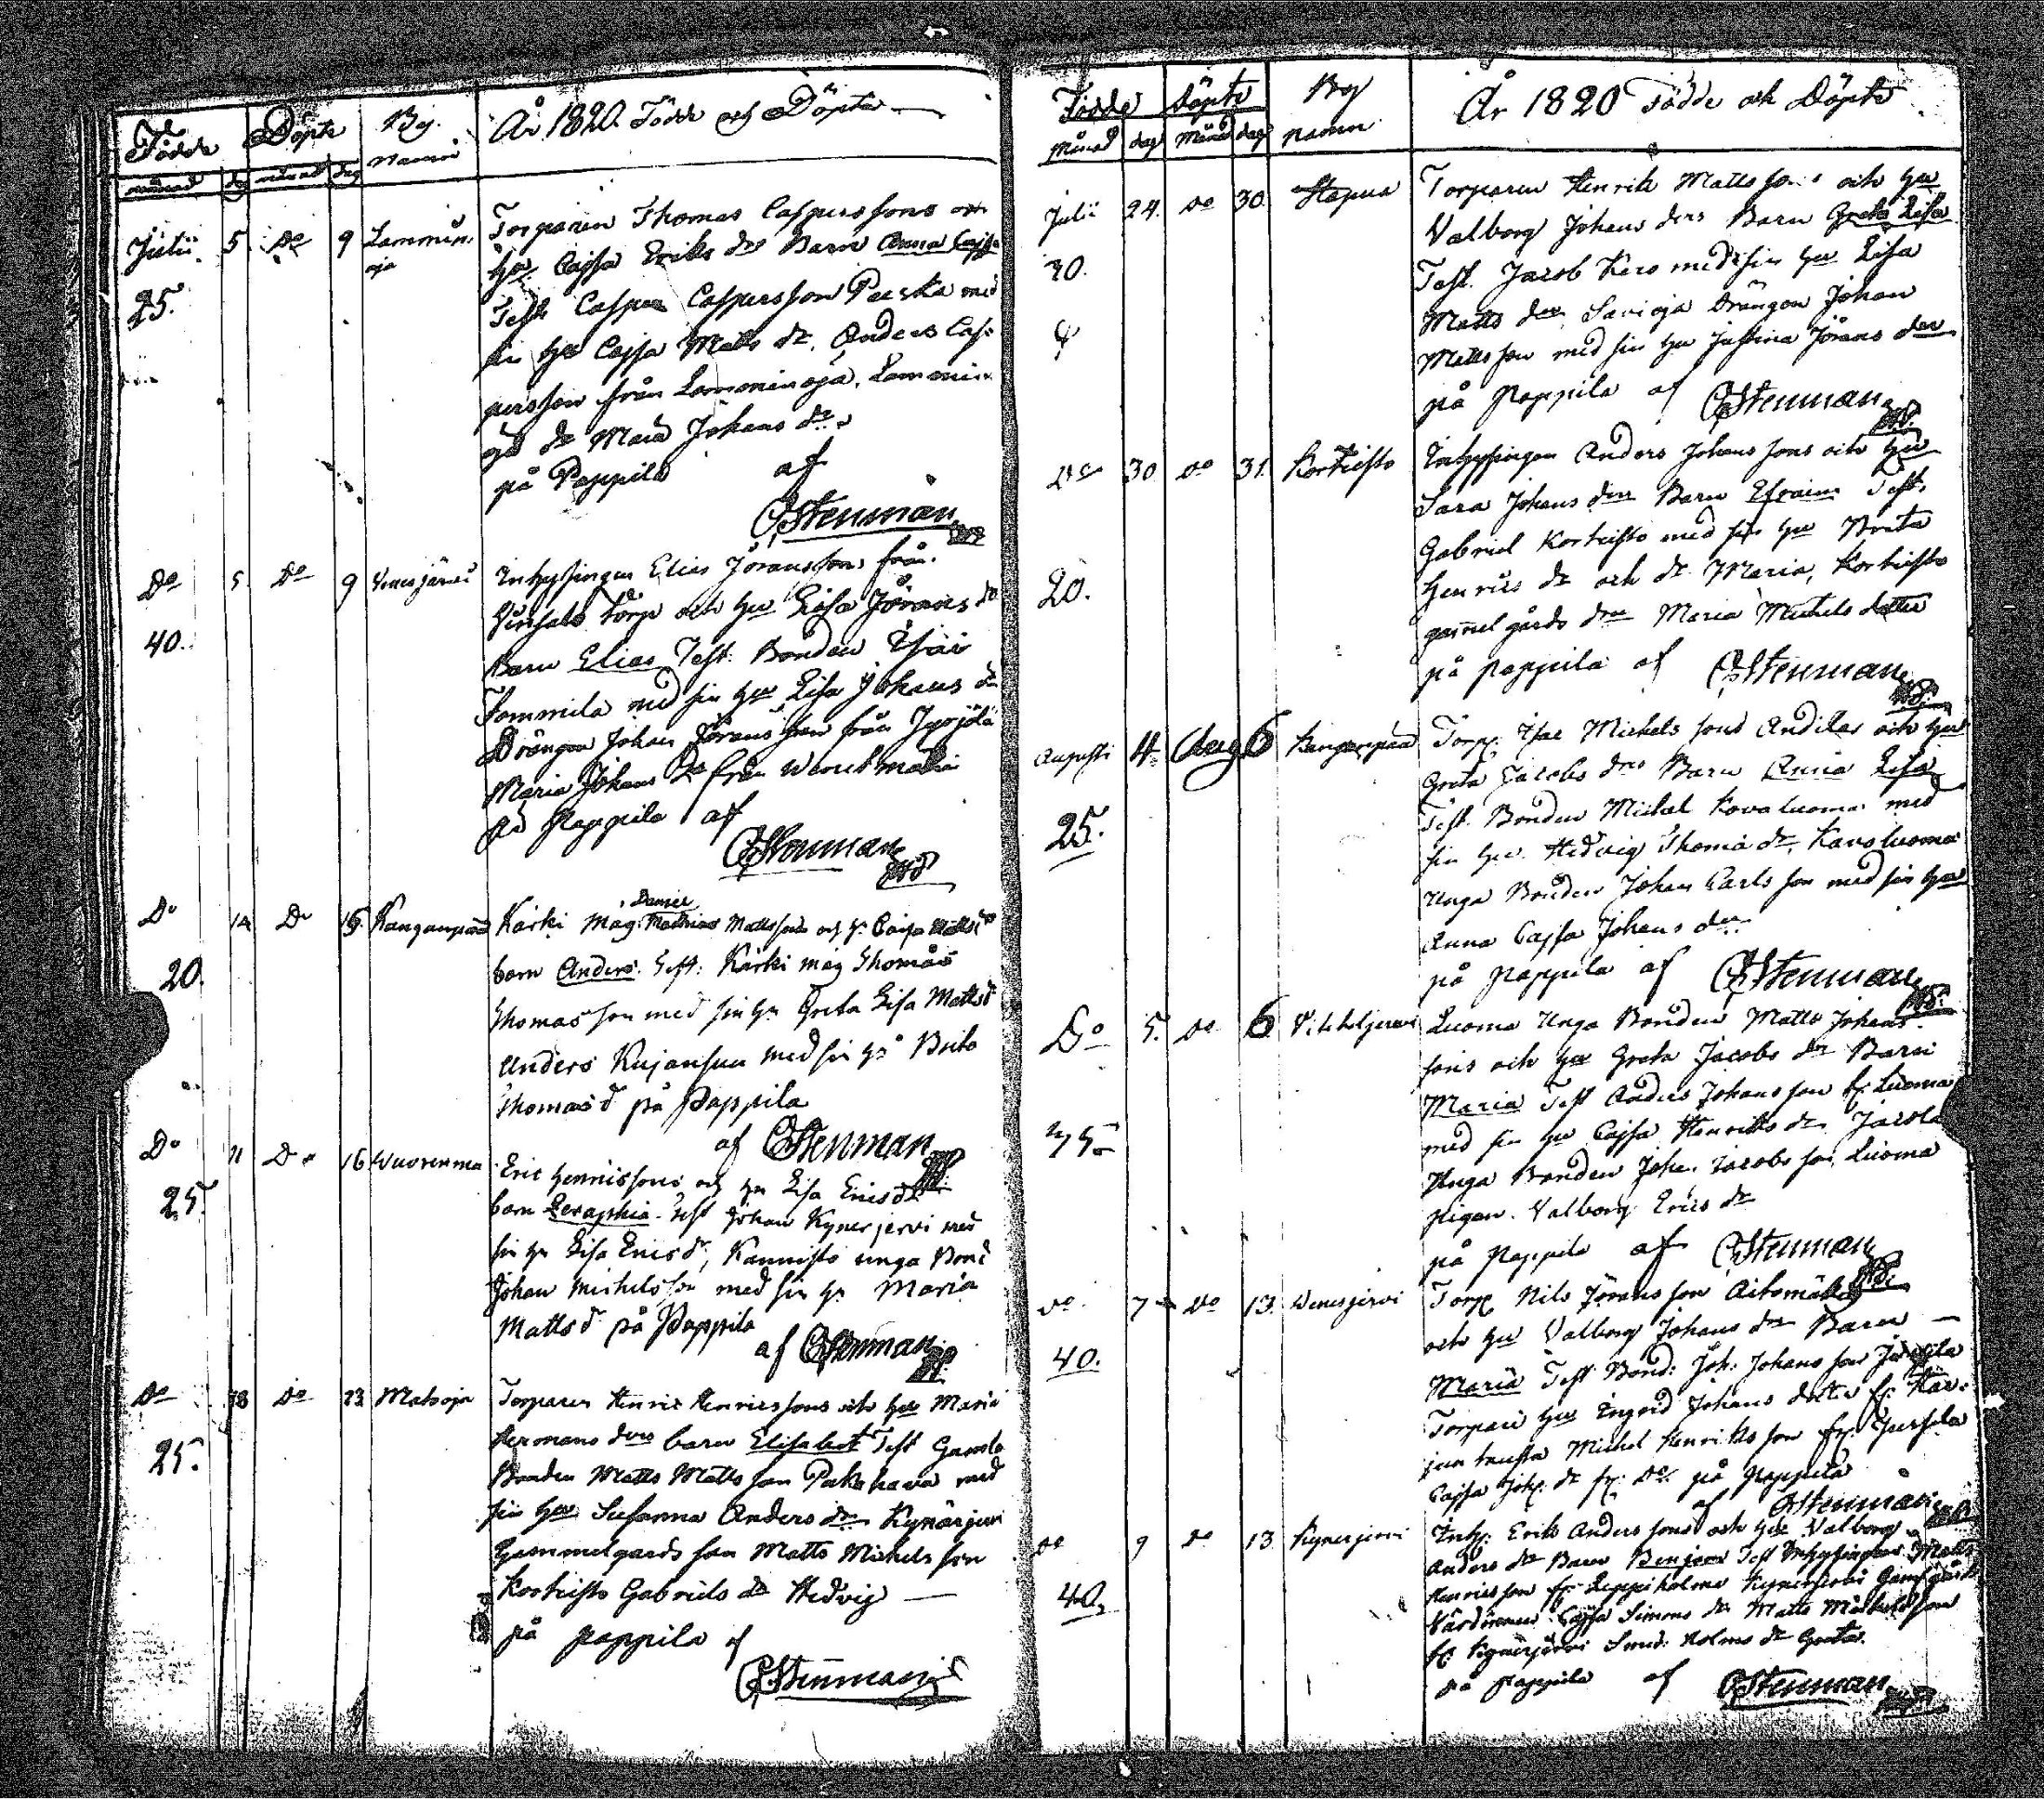 Födde Döpte By. namn År 1820 Födde och Döpte
månad dag månad dag
Julii 5 Do 9 Lamminoja Torparen Thomas Caspersons och
hu Cajsa Eriks dr Barn Anna Cajsa
25. Test. Casper Caspersson Penka med
sin hu Cajsa Matts dr. Anders Cas-
persson från Lamminoja, Lammin
oja dr Maria Johans dr
på Pappila af
CStenman
Do 5 Do 9 Venesjärvi Inhysingen Elias Jöranssons från
torp och hu Lisa Jörans dr
40. Barn Elias Test. Bonden
Tommila med sin hu Lisa Johans dr
Drängen Johan Jörans son från Jyrjölä
Maria Johans dr från
på Pappila af
CStenman
Do 14 Do 15. Kanganpää Kärki Mag. Daniel Mattssons och h. Caisa Mattsdr
20. barn Anders. Test: Kärki mag Thomas
Thomas son med sin hu Greta Lisa Mattsd
Anders Kujansuu med sin hu Brita
Thomasd på Pappila
af CStenman
Do 11 Do 16 Wuorenma Eric Henrissons och hu Lisa Ericsdrs
25. barn Seraphia. Test Johan Kynerjervi med
sin hu Lisa Ericsd, Kannisto unga Bond
Johan Michelsson med sin hu Maria
Mattsd på Pappila
af CStenman
Do 18 Do 23 Matsoja Torparen Henric Henricssons och hu Maria
Hermans drs barn Elisabet Test Gamla
25. Bonden Matts Matts son Pakkahava med
sin hu Susanna Anders dr Kynärjärvi
Gammelgårds son Matts Michels son
Kortristo Gabriels dr Hedvig
på pappila af
CStenman
Födde Döpte By namn År 1820 Födde och Döpte
Månad dag Månad dag
Julii 24. Do 30. Hapua Torparen Henrik Mattssons och hu
Valborg Johans drs Barn Greta Lisa
30. Test. Jacob Kero med sin hu Lisa
Matts dr, Savioja Drängen Johan
Mattsson med sin hu Justina Jörans dr
på Pappila af CStenman
Do 30 Do 31. Kortristo Inhysingen Anders Johans sons och hu
Sara Johans drs Barn Efraim Test.
Gabriel Kortristo med sin hu Brita
20. Henrics dr och dr Maria, Kortristo
gammelgårds dr Maria Michels dotter
på pappila af CStenman
Augusti 4. Aug 6 Kanganpää Torp. Isac Michels sons Andilas och hu
Greta Jacobs drs Barn Anna Lisa
25. Test. Bonden Michel Kovaluoma med
sin hu Hedvig Thoma dr, Kavoluoma
Unga Bonden Johan Carls son med sin hu
Anna Cajsa Johans dr
på Pappila af CStenman
Do 5. Do 6 Luoma Unga Bonden Matts Johans-
sons och hu Greta Jacobs dr Barn
Maria Test Anders Johansson fr. Luoma
med sin hu Cajsa Henriks dr Jacola
Unga Bonden Joha. Jacobs son, Luoma
Pigan Valborg Erics dr
på Pappila af CStenman
Do 7 Do 13. Venesjervi Torp. Nils Jörans son Aitomäki
och hu Valborg Johans dr Barn
40. Maria Test. Bond: Joh. Johans son
Torpari hu Ingrid Johans dotter fr. Kar-
Michel Henriks son fr.
Cajsa Joh. dr fr. Do på Pappila
af CStenman
Do 9 Do 13. Kynerjervi Inhys. Erik Anders sons och hu Valborg
Anders dr Barn Benjam Test Inhysingen Matts
40. Henricsson fr. Leppiholma Kynerjervi
Cajsa Simons dr Matts Michelsson
fr. Kynerjervi Smed. Holms dr Greta.
på Pappila af CStenman